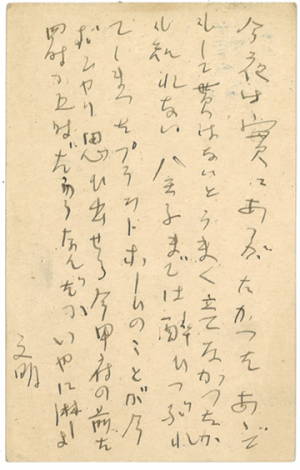 今夜は實にありがたかつたあゝで
もして貰はないとうまく立てなかつたか
も知れない 八王子まては醉ひつぶれ
てしまつたプラットホームのことが今
ぼんやり思ひ出せる今甲府の前だ
四時か五時だらうなんだかいやに淋しい
文明